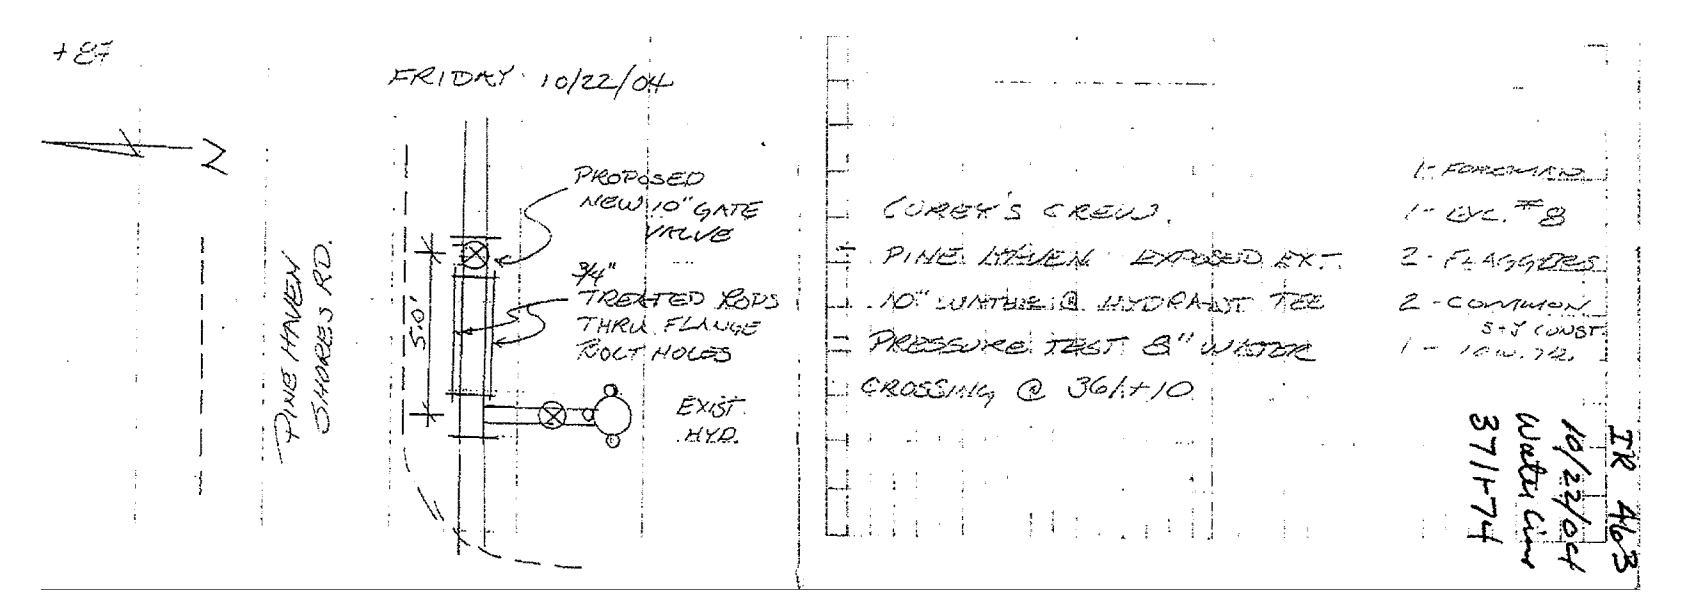 +87
FRIDAY 10/22/04
PROPOSED
NEW 10" GATE
VALVE
3/4"
TREATED RODS
THRU FLANGE
BOLT HOLES
5.0'
PINE HAVEN
SHORES RD.
EXIST.
HYD.
COREY'S CREW.
PINE HAVEN EXPOSED EXT.
10" WATER @ HYDRANT TEE
PRESSURE TEST 8" WATER
CROSSING @ 361+10
1- FOREMAN
1- EXC. #8
2- FLAGGERS
2- COMMON
CONST.
1-
IR 463
10/22/04
Water Line
371+74